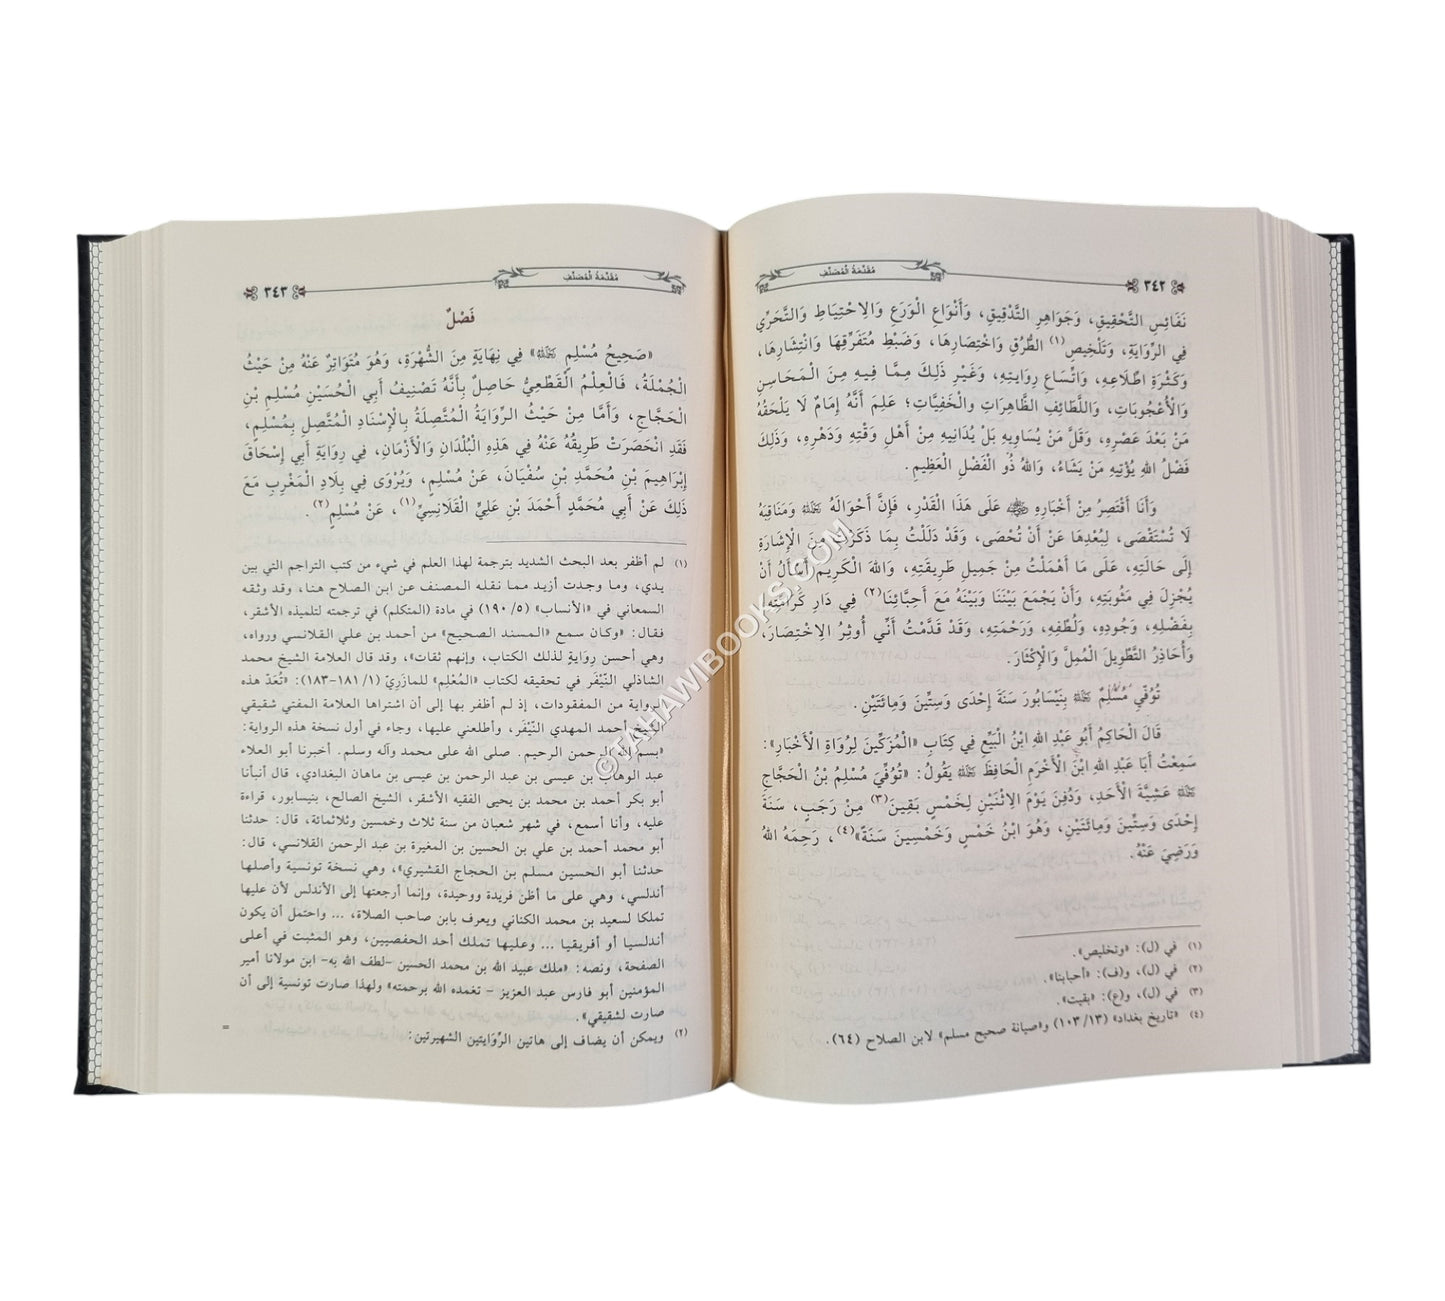 ٣٤٢
مُقَدِّمَةُ الْمُصَنِّفِ
نَفَائِسِ التَّحْقِيقِ، وَجَوَاهِرِ التَّدْقِيقِ، وَأَنْوَاعِ الْوَرَعِ وَالِاحْتِيَاطِ وَالتَّحَرِّي
فِي الرِّوَايَةِ، وَتَلْخِيصِ(١) الطُّرُقِ وَاخْتِصَارِهَا، وَضَبْطِ مُتَفَرِّقِهَا وَانْتِشَارِهَا،
وَكَثْرَةِ اطِّلَاعِهِ، وَاتِّسَاعِ رِوَايَتِهِ، وَغَيْرِ ذَلِكَ مِمَّا فِيهِ مِنَ الْمَحَاسِنِ
وَالْأُعْجُوبَاتِ، وَاللَّطَائِفِ الظَّاهِرَاتِ وَالْخَفِيَّاتِ؛ عَلِمَ أَنَّهُ إِمَامٌ لَا يَلْحَقُهُ
مَنْ بَعْدَ عَصْرِهِ، وَقَلَّ مَنْ يُسَاوِيهِ بَلْ يُدَانِيهِ مِنْ أَهْلِ وَقْتِهِ وَدَهْرِهِ، وَذَلِكَ
فَضْلُ اللهِ يُؤْتِيهِ مَنْ يَشَاءُ، وَاللهُ ذُو الْفَضْلِ الْعَظِيمِ.
وَأَنَا أَقْتَصِرُ مِنْ أَخْبَارِهِ عَلَى هَذَا الْقَدْرِ، فَإِنَّ أَحْوَالَهُ وَمَنَاقِبَهُ
لَا تُسْتَقْصَى، لِبُعْدِهَا عَنْ أَنْ تُحْصَى، وَقَدْ دَلَلْتُ بِمَا ذَكَرْتُ مِنَ الْإِشَارَةِ
إِلَى حَالَتِهِ، عَلَى مَا أَهْمَلْتُ مِنْ جَمِيلِ طَرِيقَتِهِ، وَاللهَ الْكَرِيمَ أَسْأَلُ أَنْ
يُجْزِلَ فِي مَثُوبَتِهِ، وَأَنْ يَجْمَعَ بَيْنَنَا وَبَيْنَهُ مَعَ أَحِبَّائِنَا(٢) فِي دَارِ كَرَامَتِهِ،
بِفَضْلِهِ، وَجُودِهِ، وَلُطْفِهِ، وَرَحْمَتِهِ، وَقَدْ قَدَّمْتُ أَنِّي أُوثِرُ الِاخْتِصَارَ،
وَأُحَاذِرُ التَّطْوِيلَ الْمُمِلَّ وَالْإِكْثَارَ.
تُوُفِّيَ مُسْلِمٌ بِنَيْسَابُورَ سَنَةَ إِحْدَى وَسِتِّينَ وَمِائَتَيْنِ.
قَالَ الْحَاكِمُ أَبُو عَبْدِ اللهِ ابْنُ الْبَيِّعِ فِي كِتَابِ «الْمُزَكِّينَ لِرُوَاةِ الْأَخْبَارِ»:
سَمِعْتُ أَبَا عَبْدِ اللهِ ابْنَ الْأَخْرَمِ الْحَافِظَ يَقُولُ: «تُوُفِّيَ مُسْلِمُ بْنُ الْحَجَّاجِ
عَشِيَّةَ الْأَحَدِ، وَدُفِنَ يَوْمَ الِاثْنَيْنِ لِخَمْسٍ بَقِينَ(٣) مِنْ رَجَبٍ، سَنَةَ
إِحْدَى وَسِتِّينَ وَمِائَتَيْنِ، وَهُوَ ابْنُ خَمْسٍ وَخَمْسِينَ سَنَةً»(٤)، رَحِمَهُ اللهُ
وَرَضِيَ عَنْهُ.
(١) في (ل): «وتخليص».
(٢) في (ل)، و(ف): «أحبابنا».
(٣) في (ل)، و(ع): «بقيت».
(٤) «تاريخ بغداد» (١٠٣/١٣) و«صيانة صحيح مسلم» لابن الصلاح (٦٤).
مُقَدِّمَةُ الْمُصَنِّفِ
٣٤٣
فَصْلٌ
«صَحِيحُ مُسْلِمٍ» فِي نِهَايَةٍ مِنَ الشُّهْرَةِ، وَهُوَ مُتَوَاتِرٌ عَنْهُ مِنْ حَيْثُ
الْجُمْلَةُ، فَالْعِلْمُ الْقَطْعِيُّ حَاصِلٌ بِأَنَّهُ تَصْنِيفُ أَبِي الْحُسَيْنِ مُسْلِمِ بْنِ
الْحَجَّاجِ، وَأَمَّا مِنْ حَيْثُ الرِّوَايَةُ الْمُتَّصِلَةُ بِالْإِسْنَادِ الْمُتَّصِلِ بِمُسْلِمٍ،
فَقَدِ انْحَصَرَتْ طَرِيقُهُ عَنْهُ فِي هَذِهِ الْبُلْدَانِ وَالْأَزْمَانِ، فِي رِوَايَةِ أَبِي إِسْحَاقَ
إِبْرَاهِيمَ بْنِ مُحَمَّدِ بْنِ سُفْيَانَ، عَنْ مُسْلِمٍ، وَيُرْوَى فِي بِلَادِ الْمَغْرِبِ مَعَ
ذَلِكَ عَنْ أَبِي مُحَمَّدٍ أَحْمَدَ بْنِ عَلِيٍّ الْقَلَانِسِيِّ(١)، عَنْ مُسْلِمٍ(٢).
(١) لم أظفر بعد البحث الشديد بترجمة لهذا العلم في شيء من كتب التراجم التي بين
يدي، وما وجدت أزيد مما نقله المصنف عن ابن الصلاح هنا، وقد وثقه
السمعاني في «الأنساب» (١٩٠/٥) في مادة (المتكلم) في ترجمته لتلميذه الأشقر،
فقال: «وكان سمع «المسند الصحيح» من أحمد بن علي القلانسي ورواه،
وهي أحسن رواية لذلك الكتاب، وإنهم ثقات»، وقد قال العلامة الشيخ محمد
الشاذلي النّيْفَر في تحقيقه لكتاب «المُعْلِم» للمازَرِيّ (١/ ١٨١-١٨٣): «تُعَدّ هذه
الرواية من المفقودات، إذ لم أظفر بها إلى أن اشتراها العلامة المفتي شقيقي
الشيخ أحمد المهدي النّيْفَر، وأطلعني عليها، وجاء في أول نسخة هذه الرواية:
«بسم الله الرحمن الرحيم. صلى الله على محمد وآله وسلم. أخبرنا أبو العلاء
عبد الوهاب بن عيسى بن عبد الرحمن بن عيسى بن ماهان البغدادي، قال أنبأنا
أبو بكر أحمد بن محمد بن يحيى الفقيه الأشقر، الشيخ الصالح، بنيسابور، قراءة
عليه، وأنا أسمع، في شهر شعبان من سنة ثلاث وخمسين وثلاثمائة، قال: حدثنا
أبو محمد أحمد بن علي بن الحسين بن المغيرة بن عبد الرحمن القلانسي، قال:
حدثنا أبو الحسين مسلم بن الحجاج القشيري»، وهي نسخة تونسية وأصلها
أندلسي، وهي على ما أظن فريدة ووحيدة، وإنما أرجعتها إلى الأندلس لأن عليها
تملكا لسعيد بن محمد الكناني ويعرف بابن صاحب الصلاة، ... واحتمل أن يكون
أندلسيا أو أفريقيا ... وعليها تملك أحد الحفصيين، وهو المثبت في أعلى
الصفحة، ونصه: «ملك عبيد الله بن محمد الحسين -لطف الله به- ابن مولانا أمير
المؤمنين أبو فارس عبد العزيز - تغمده الله برحمته» ولهذا صارت تونسية إلى أن
صارت لشقيقي».
(٢) ويمكن أن يضاف إلى هاتين الرِّوَايتين الشهيرتين:
=
©TAHAWIBOOKS.COM